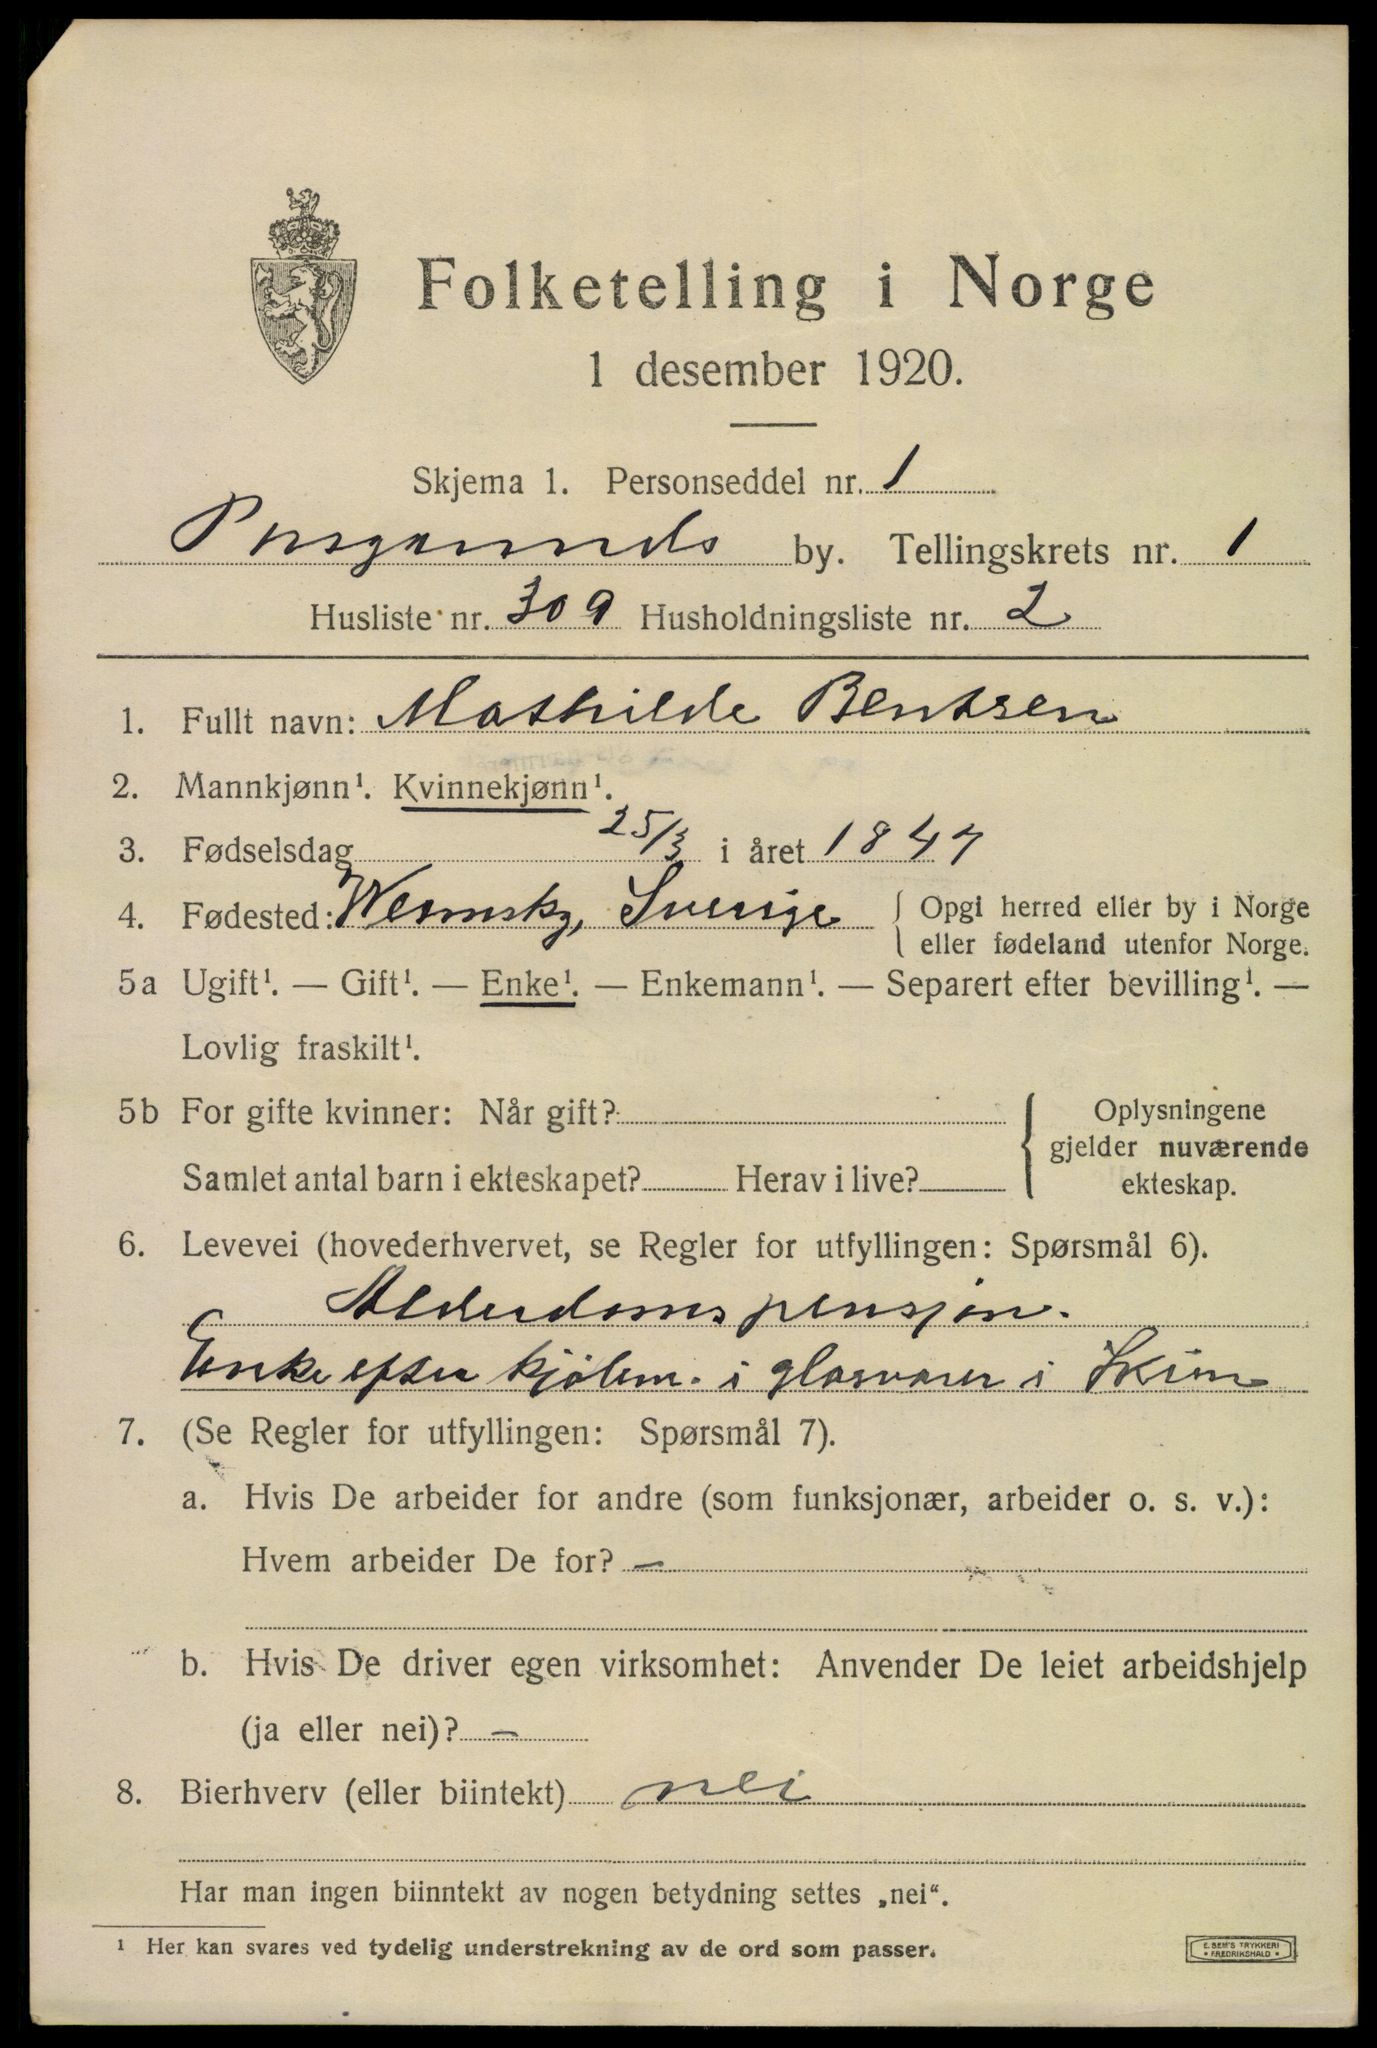 Folketelling i Norge
1 desember 1920.
Skjema 1. Personseddel nr. 1
Porsgrunds by. Tellingskrets nr. 1
Husliste nr. 309 Husholdningsliste nr. 2
1. Fullt navn: Mathilde Bentsen
2. Mannkjønn¹. Kvinnekjønn¹.
3. Fødselsdag 25/3 i året 1847
4. Fødested: Sverige { Opgi herred eller by i Norge
eller fødeland utenfor Norge.
5a Ugift¹. — Gift¹. — Enke¹. — Enkemann¹. — Separert efter bevilling¹. —
Lovlig fraskilt¹.
5b For gifte kvinner: Når gift?
Samlet antal barn i ekteskapet? Herav i live?
{ Oplysningene
gjelder nuværende
ekteskap.
6. Levevei (hovederhvervet, se Regler for utfyllingen: Spørsmål 6).
Alderdomspensjon.
Enke efter kjøbm. i glasvarer i Skien
7. (Se Regler for utfyllingen: Spørsmål 7).
a. Hvis De arbeider for andre (som funksjonær, arbeider o. s. v.):
Hvem arbeider De for? —
b. Hvis De driver egen virksomhet: Anvender De leiet arbeidshjelp
(ja eller nei)? —
8. Bierhverv (eller biintekt) nei
Har man ingen biinntekt av nogen betydning settes „nei“.
¹ Her kan svares ved tydelig understrekning av de ord som passer.
E. SEM'S TRYKKERI
• FREDRIKSHALD •